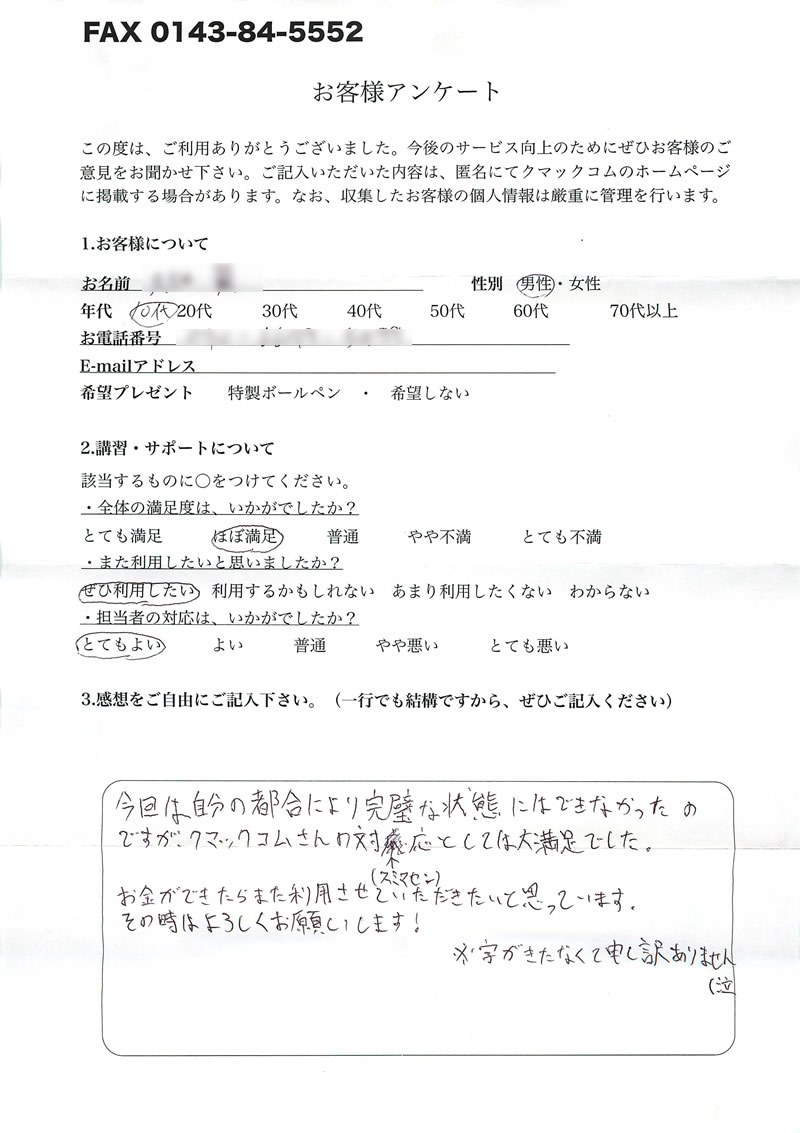 FAX 0143-84-5552
お客様アンケート
この度は、ご利用ありがとうございました。今後のサービス向上のためにぜひお客様のご
意見をお聞かせ下さい。ご記入いただいた内容は、匿名にてクマックコムのホームページ
に掲載する場合があります。なお、収集したお客様の個人情報は厳重に管理を行います。
1.お客様について
お名前 性別 男性・女性
年代 10代 20代 30代 40代 50代 60代 70代以上
お電話番号
E-mailアドレス
希望プレゼント 特製ボールペン ・ 希望しない
2.講習・サポートについて
該当するものに○をつけてください。
・全体の満足度は、いかがでしたか？
とても満足 ほぼ満足 普通 やや不満 とても不満
・また利用したいと思いましたか？
ぜひ利用したい 利用するかもしれない あまり利用したくない わからない
・担当者の対応は、いかがでしたか？
とてもよい よい 普通 やや悪い とても悪い
3.感想をご自由にご記入下さい。（一行でも結構ですから、ぜひご記入ください）
今回は自分の都合により完璧な状態にはできなかったの
ですが、クマックコムさんの対応としては大満足でした。
(スミマセン)
お金ができたらまた利用させていただきたいと思っています。
その時はよろしくお願いします！
※字がきたなくて申し訳ありません
(泣